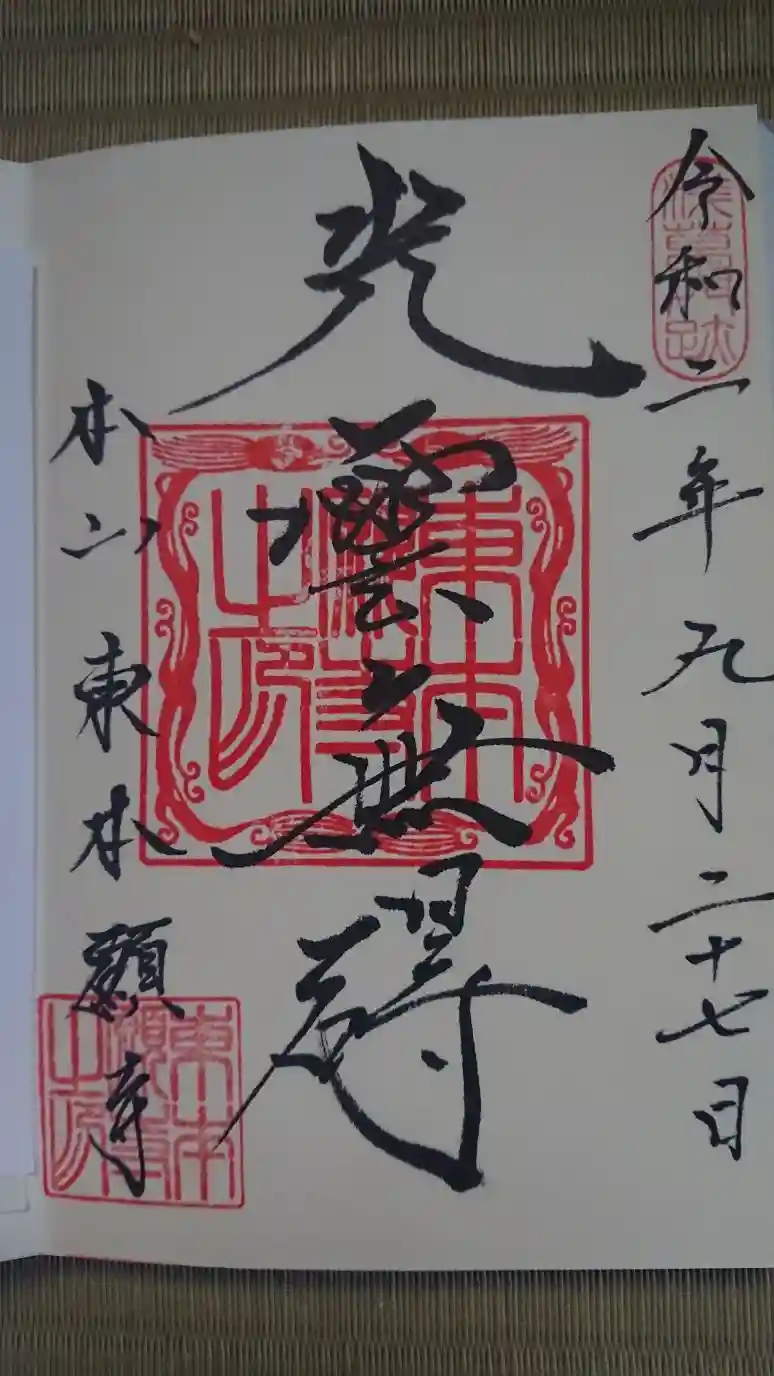 淺草門跡
令和二年九月二十七日
光雲無碍
東本願寺之印
本山東本願寺
東本願寺之印